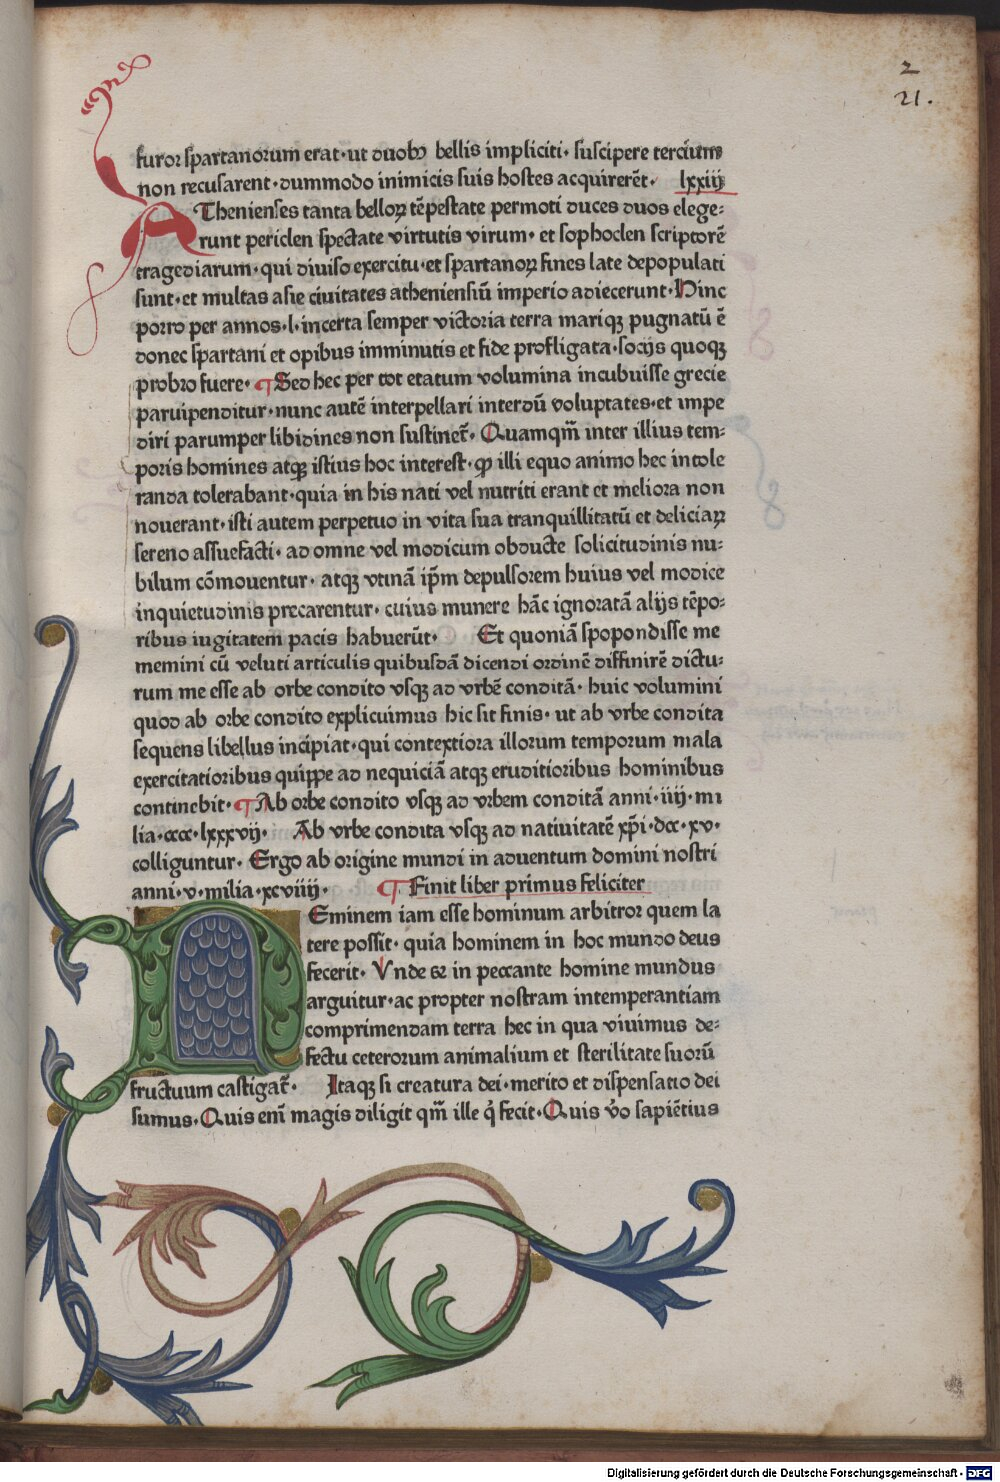 2
21.
furor spartanorum erat·ut duobꝰ bellis impliciti· suscipere tercium
non recusarent·dummodo inimicis suis hostes acquirerẽt· lxxiij
AThenienses tanta belloꝝ tẽpestate permoti duces duos elege:
runt periclen spectate virtutis virum· et sophoclen scriptorẽ
tragediarum·qui diuiso exercitu·et spartanoꝝ fines late depopulati
sunt·et multas asie ciuitates atheniensiũ imperio adiecerunt·Hinc
porro per annos·l·incerta semper victoria terra mariqꝫ pugnatũ ẽ
donec spartani et opibus imminutis et fide profligata·socijs quoqꝫ
probro fuere· ¶Sed hec per tot etatum volumina incubuisse grecie
paruipenditur·nunc autẽ interpellari interdũ voluptates·et impe
diri parumper libidines non sustinet̃· Quamqm̃ inter illius tem:
poris homines atqꝫ istius hoc interest·ꝙ illi equo animo hec intole
randa tolerabant·quia in his nati vel nutriti erant et meliora non
nouerant·isti autem perpetuo in vita sua tranquillitatũ et deliciaꝝ
sereno assuefacti· ad omne vel modicum obducte solicitudinis nu:
bilum cõmouentur· atqꝫ vtinã ip̃m depulsorem huius vel modice
inquietudinis precarentur· cuius munere hãc ignoratã alijs tẽpo:
ribus iugitatem pacis habuerũt· Et quoniã spopondisse me
memini cũ veluti articulis quibusdã dicendi ordinẽ diffinirẽ dictu:
rum me esse ab orbe condito vsqꝫ ad vrbẽ conditã· huic volumini
quod ab orbe condito explicuimus hic sit finis· ut ab vrbe condita
sequens libellus incipiat·qui contextiora illorum temporum mala
exercitatioribus quippe ad nequiciã atqꝫ eruditioribus hominibus
continebit·¶Ab orbe condito vsqꝫ ad vrbem conditã anni·iiij·mi
lia·cccc·lxxxvij· Ab vrbe condita vsqꝫ ad natiuitatẽ xp̃i·dcc·xv·
colliguntur· Ergo ab origine mundi in aduentum domini nostri
anni·v·milia·xcviiij· ¶Finit liber primus feliciter
NEminem iam esse hominum arbitror quem la
tere possit· quia hominem in hoc mundo deus
fecerit· Vnde &amp; in peccante homine mundus
arguitur·ac propter nostram intemperantiam
comprimendam terra hec in qua viuimus de:
fectu ceterorum animalium et sterilitate suorũ
fructuum castigat̃· Itaqꝫ si creatura dei·merito et dispensatio dei
sumus·Quis enĩ magis diligit qm̃ ille q̓ fecit·Quis v̓o sapiẽtius
Digitalisierung gefördert durch die Deutsche Forschungsgemeinschaft - DFG